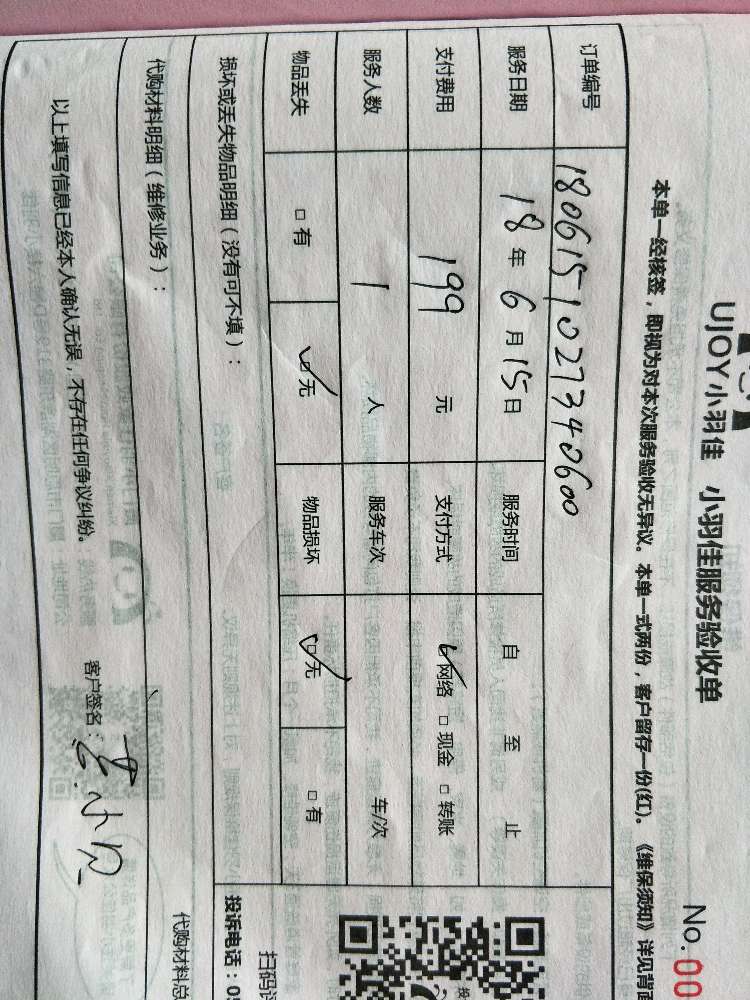 UJOY小羽佳 小羽佳服务验收单
No.00
本单一经核签，即视为对本次服务验收无异议。本单一式两份，客户留存一份(红)。《维保须知》详见背面
订单编号 1806151027340600
服务日期 18年6月15日 服务时间 自 至 止
支付费用 199 元 支付方式 ☑网络 □现金 □转账
服务人数 1 人 服务车次 车/次
物品丢失 □有 ☑无 物品损坏 ☑无 □有
损坏或丢失物品明细（没有可不填）：
扫码
投诉电话：05
代购材料明细（维修业务）：
代购材料总
以上填写信息已经本人确认无误，不存在任何争议纠纷。
客户签名：